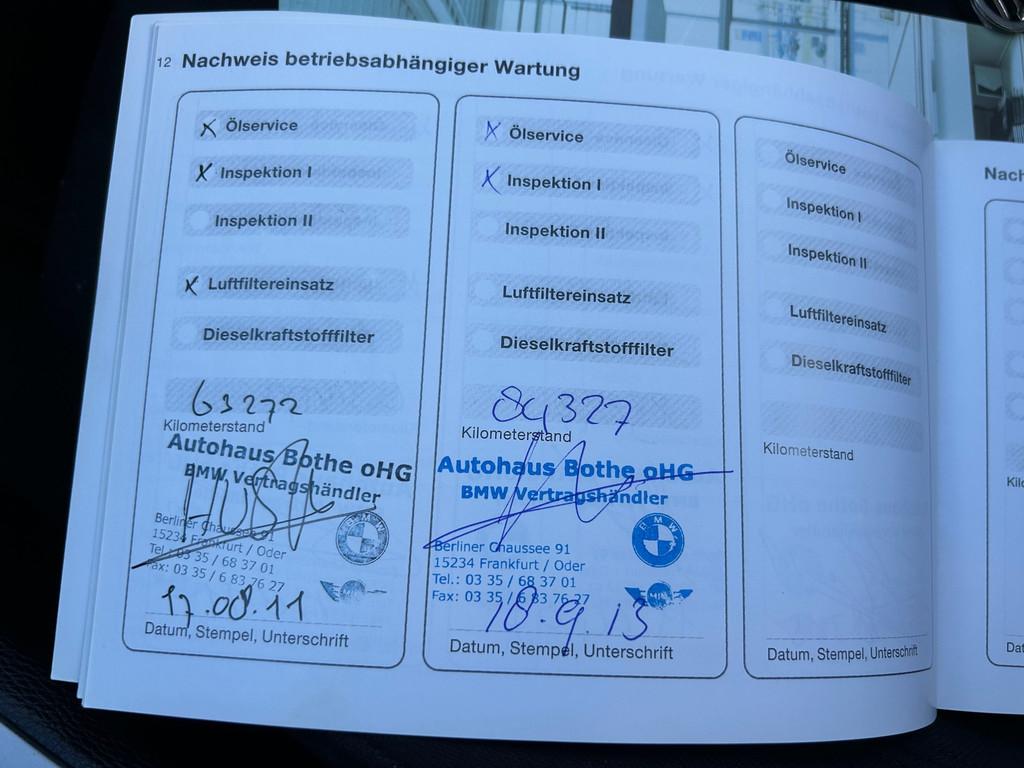 12 Nachweis betriebsabhängiger Wartung
x Ölservice
x Inspektion I
Inspektion II
x Luftfiltereinsatz
Dieselkraftstofffilter
63272
Kilometerstand
Autohaus Bothe oHG
BMW Vertragshändler
Berliner Chaussee 91
15234 Frankfurt / Oder
Tel.: 03 35 / 68 37 01
Fax: 03 35 / 6 83 76 27
17.08.11
Datum, Stempel, Unterschrift
x Ölservice
x Inspektion I
Inspektion II
Luftfiltereinsatz
Dieselkraftstofffilter
84327
Kilometerstand
Autohaus Bothe oHG
BMW Vertragshändler
BMW
Berliner Chaussee 91
15234 Frankfurt / Oder
Tel.: 03 35 / 68 37 01
Fax: 03 35 / 6 83 76 27
MINI
18.9.13
Datum, Stempel, Unterschrift
Ölservice
Inspektion I
Inspektion II
Luftfiltereinsatz
Dieselkraftstofffilter
Kilometerstand
Datum, Stempel, Unterschrift
Nach
Kil
Dat